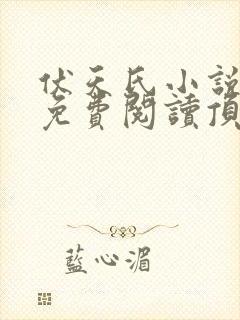 伏天氏小說
免費閱讀頂
藍心湄